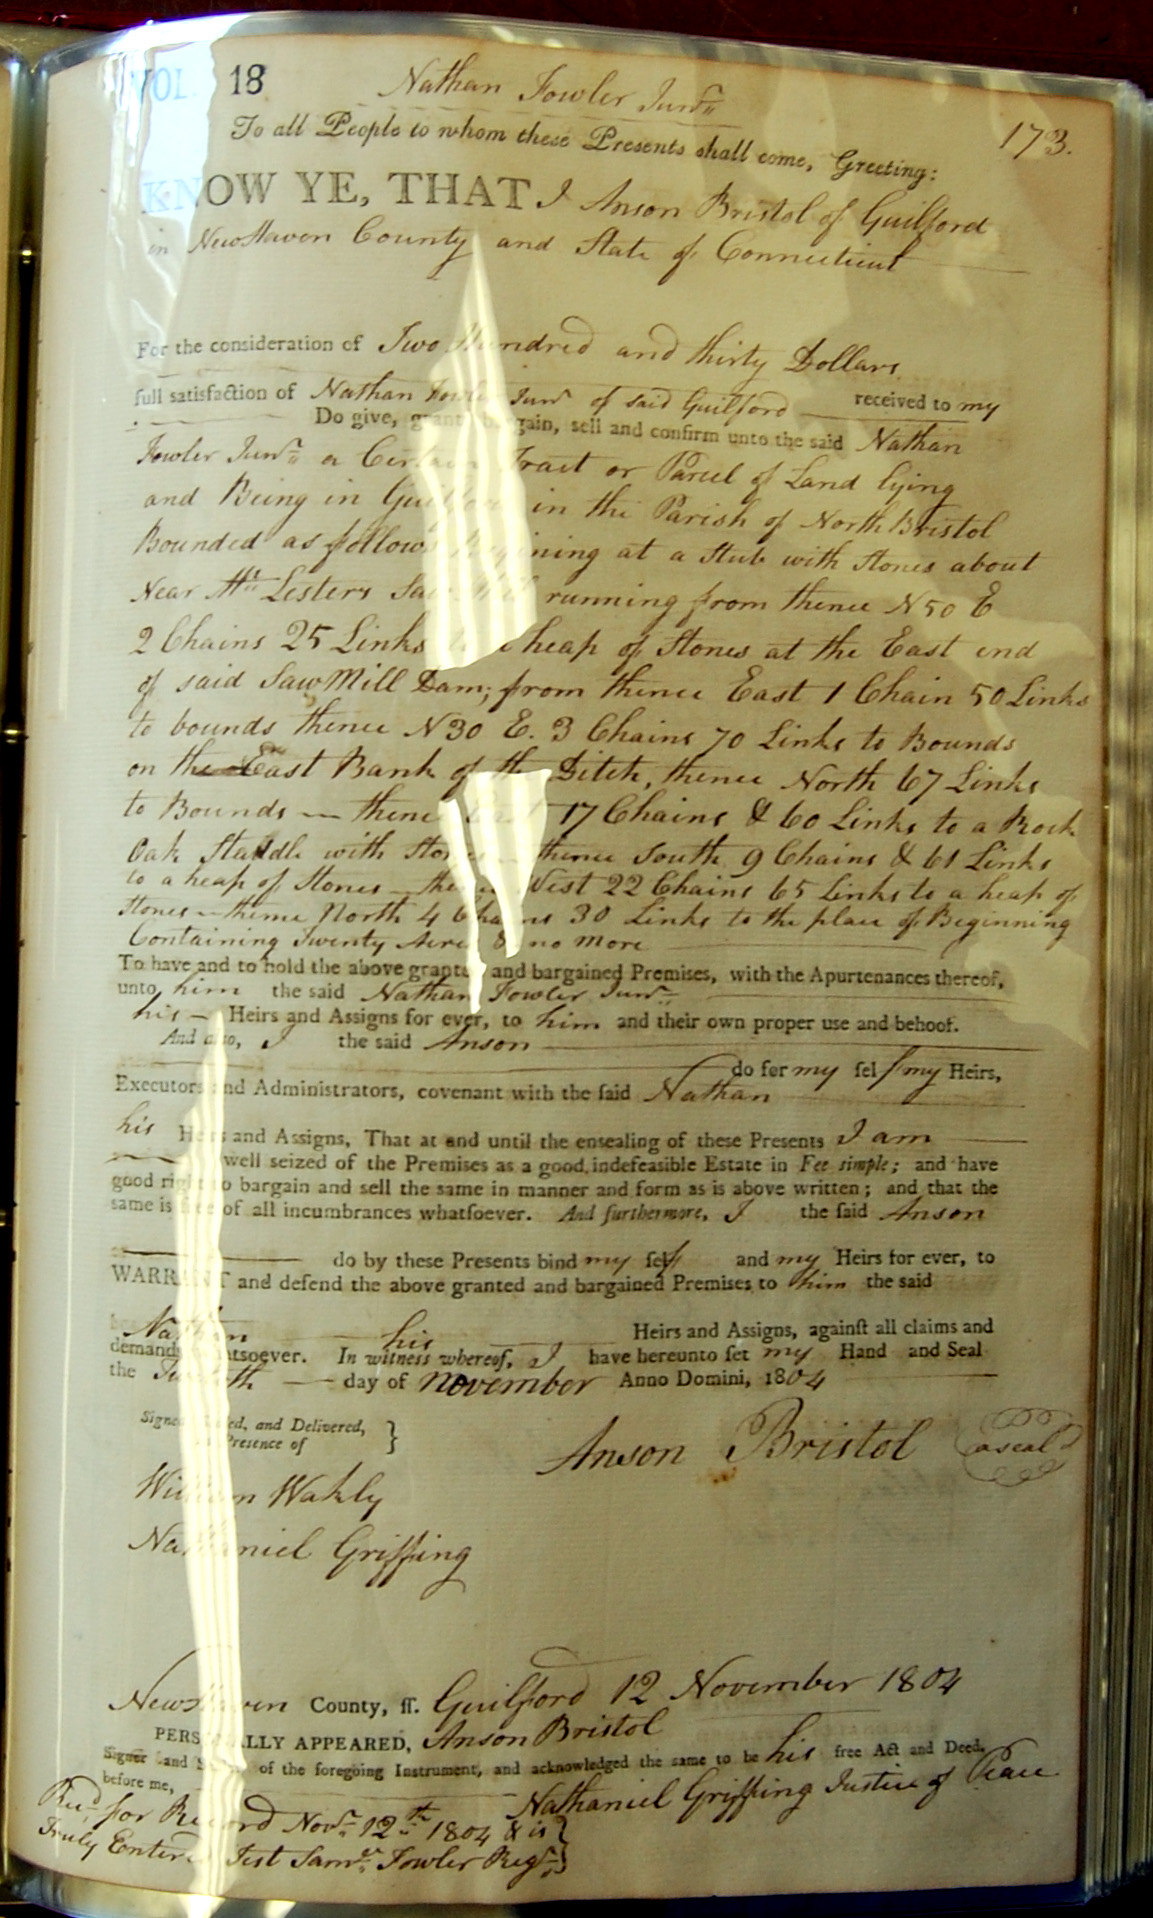 VOL. 18
Nathan Fowler Junr
173.
To all People to whom these Presents shall come, Greeting:
KNOW YE, THAT I Anson Bristol of Guilford
in NewHaven County and State of Connecticut
For the consideration of Two Hundred and thirty Dollars
received to my
full satisfaction of Nathan Fowler Junr of said Guilford
Do give, grant bargain, sell and confirm unto the said Nathan
Fowler Junr a Certain Tract or Parcel of Land lying
and Being in Guilford in the Parish of North Bristol
Bounded as follows Begining at a Stub with Stones about
Near Mr Lesters Saw Mill running from thence N 50 E
2 Chains 25 Links to a heap of Stones at the East end
of said Saw Mill Dam; from thence East 1 Chain 50 Links
to bounds thence N 30 E. 3 Chains 70 Links to Bounds
on the East Bank of the Ditch, thence North 67 Links
to Bounds — thence East 17 Chains & 60 Links to a Rock
Oak Staddle with Stones — thence South 9 Chains & 61 Links
to a heap of Stones — thence West 22 Chains 65 Links to a heap of
Stones — thence North 4 Chains 30 Links to the place of Beginning
Containing Twenty Acres & no more
To have and to hold the above granted and bargained Premises, with the Apurtenances thereof,
unto him the said Nathan Fowler Junr
his — Heirs and Assigns for ever, to him and their own proper use and behoof.
And also, I the said Anson
do for my self my Heirs,
Executors and Administrators, covenant with the said Nathan
his Heirs and Assigns, That at and until the ensealing of these Presents I am
well seized of the Premises as a good, indefeasible Estate in Fee simple; and have
good right to bargain and sell the same in manner and form as is above written; and that the
same is free of all incumbrances whatsoever. And furthermore, I the said Anson
do by these Presents bind my self and my Heirs for ever, to
WARRANT and defend the above granted and bargained Premises to him the said
Nathan his Heirs and Assigns, against all claims and
demands whatsoever. In witness whereof, I have hereunto set my Hand and Seal
the Twelfth day of November Anno Domini, 1804
Signed, Sealed, and Delivered,
in Presence of }
Anson Bristol a seal
William Wakly
Nathaniel Griffing
New Haven County, ss. Guilford 12 November 1804
PERSONALLY APPEARED, Anson Bristol
Signer and Sealer of the foregoing Instrument, and acknowledged the same to be his free Act and Deed,
before me, Nathaniel Griffing Justice of Peace
Recd for Record Novr 12th 1804 & is }
Truly Entered Test Saml Fowler Regr }